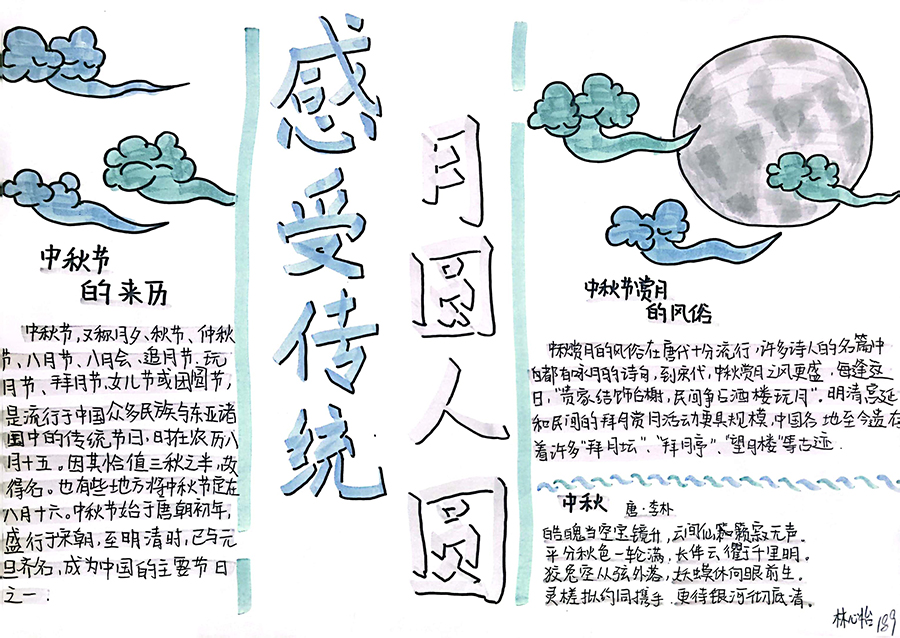 感受传统
月圆人圆
中秋节
的来历
中秋节,又称月夕、秋节、仲秋
节、八月节、八月会、追月节、玩
月节、拜月节、女儿节或团圆节,
是流行于中国众多民族与东亚诸
国中的传统节日,时在农历八
月十五。因其恰值三秋之半,故
得名。也有些地方将中秋节定在
八月十六。中秋节始于唐朝初年,
盛行于宋朝,至明清时,已与元
旦齐名,成为中国的主要节日
之一.
中秋节赏月
的风俗
中秋赏月的风俗在唐代十分流行,许多诗人的名篇中
都有咏月的诗句,到宋代,中秋赏月之风更盛,每逢这
日,“贵家结饰台榭,民间争占酒楼玩月”。明清宫廷
和民间的拜月赏月活动更具规模,中国各地至今遗存
着许多“拜月坛”、“拜月亭”、“望月楼”等古迹.
中秋
唐·李朴
皓魄当空宝镜升,云间仙籁寂无声。
平分秋色一轮满,长伴云衢千里明。
狡兔空从弦外落,妖蟆休向眼前生。
灵槎拟约同携手,更待银河彻底清。
林心怡 189